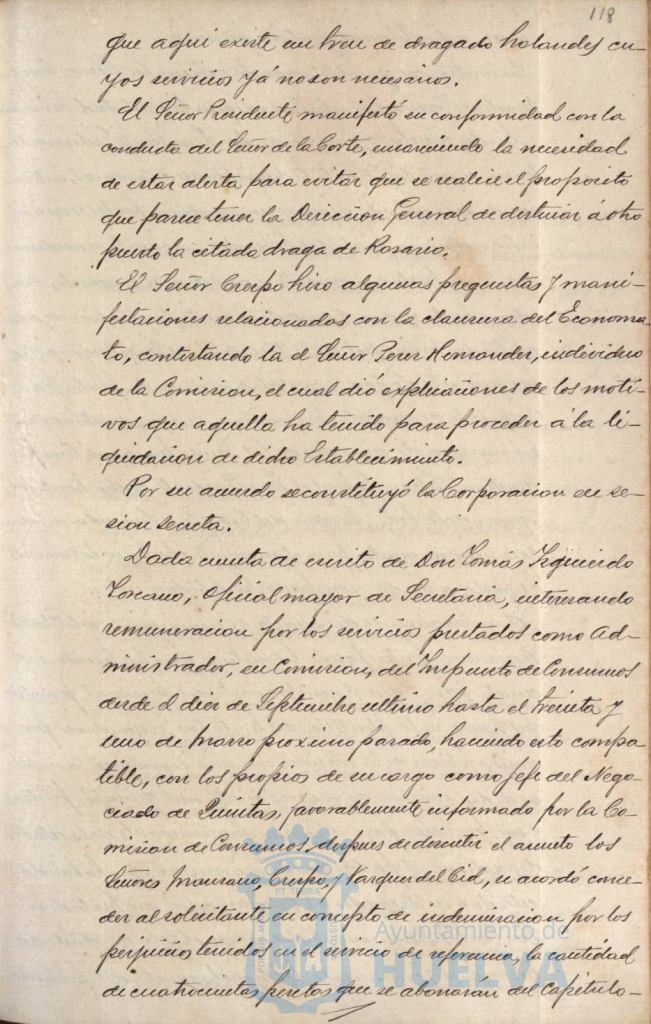 118
que aqui existe un tren de dragado holandes cu-
yos servicios ya no son necesarios.
El Señor Presidente manifestó su conformidad con la
conducta del Señor de la Corte, enareciendo la necesidad
de estar alerta para evitar que se realice el proposito
que parece tener la Direccion General de destinar á otro
puerto la citada draga de Rosario.
El Señor Crespo hizo algunas preguntas y mani-
festaciones relacionadas con la clausura del Economa-
to, contestando la el Señor Perez Hernandez, individuo
de la Comision, el cual dió explicaciones de los moti-
vos que aquella ha tenido para proceder á la li-
quidacion de dicho Establecimiento.
Por su acuerdo se constituyó la Corporacion en se-
sion secreta.
Dada cuenta de escrito de Don Tomás Izquierdo
Toscano, oficial mayor de Secretaria, interesando
remuneracion por los servicios prestados como Ad-
ministrador, en Comision, del Impuesto de Consumos
desde el diez de Septiembre ultimo hasta el treinta y
uno de Marzo proximo pasado, haciendo esto compa-
tible, con los propios de su cargo como Jefe del Nego-
ciado de Quintas, favorablemente informado por la Co-
mision de Consumos, despues de discutir el asunto los
Señores Manzano, Crespo, y Vazquez del Cid, se acordó conce-
der al solicitante en concepto de indemnizacion por los
perjuicios tenidos en el servicio de referencia, la cantidad
de cuatrocientas pesetas que se abonarán del Capitulo-
Ayuntamiento de
HUELVA